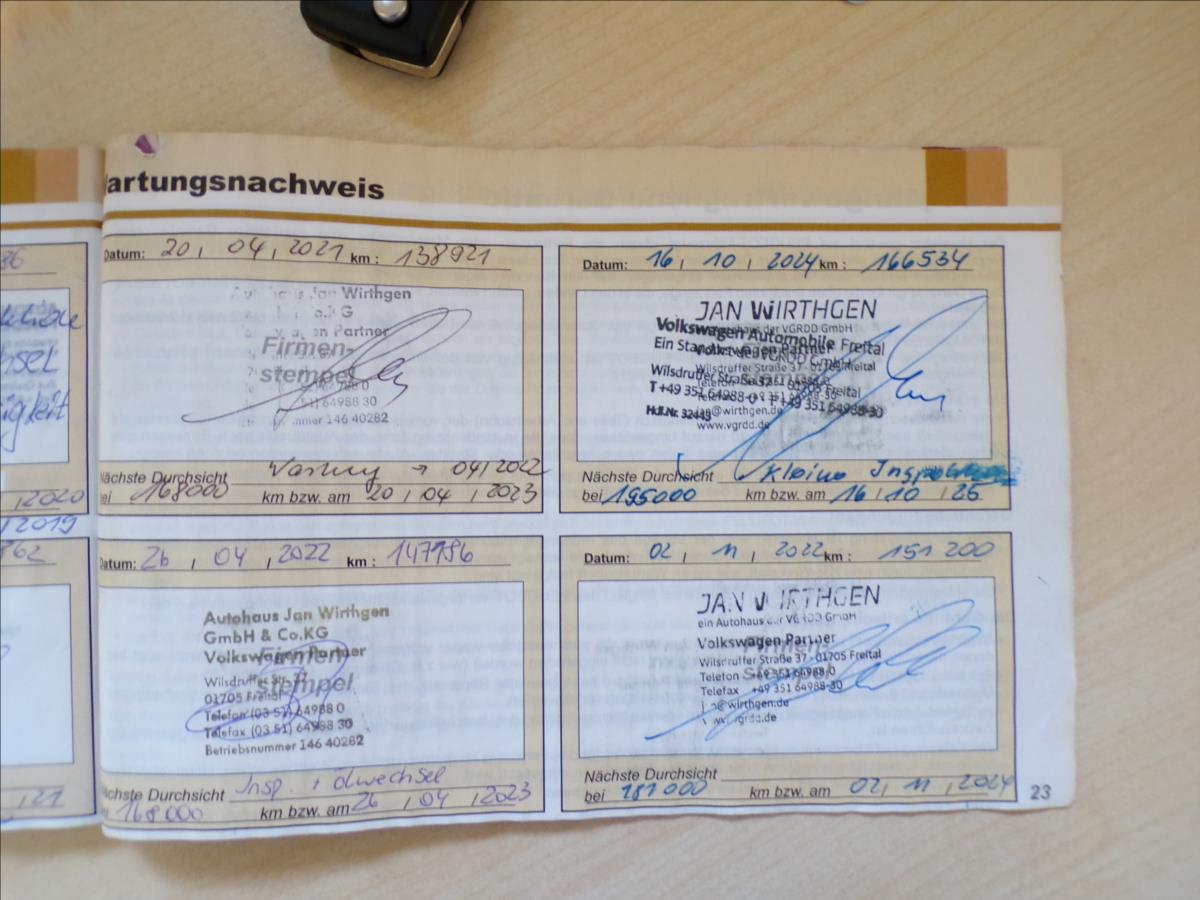 artungsnachweis
Datum: 20, 04, 2021 km: 138921
Autohaus Jan Wirthgen
Partner
Firmen-
stempel
64988 30
146 40282
Nächste Durchsicht Wartung → 04/2022
bei 168000 km bzw. am 20, 04, 2023
Datum: 16, 10, 2024 km: 166534
JAN WIRTHGEN
Volkswagen Automobile Freital
Wilsdruffer Straße 37 - 01705 Freital
T +49 351 64988-0 F +49 351 64988-30
Hdl.Nr. 32443
@wirthgen.de
www.vgrdd.de
Nächste Durchsicht Kleine
bei 195000 km bzw. am 16, 10, 26
Datum: 26, 04, 2022 km: 147796
Autohaus Jan Wirthgen
GmbH & Co.KG
Volkswagen Partner
Firmen-
stempel
Wilsdruffer Str. 37
01705 Freital
Telefon (03 51) 64988 0
Telefax (03 51) 64988 30
Betriebsnummer 146 40282
Nächste Durchsicht Insp. , Ölwechsel
168000 km bzw. am 26, 04, 2023
Datum: 02, 11, 2022 km: 151 200
JAN WIRTHGEN
ein Autohaus der VGRDD GmbH
Volkswagen Partner
Firmen-
stempel
Wilsdruffer Straße 37 - 01705 Freital
Telefon +49 351 64988-0
Telefax +49 351 64988-30
@wirthgen.de
vgrdd.de
Nächste Durchsicht
bei 181000 km bzw. am 02, 11, 2024
23
, 2020
2019
862
, 21